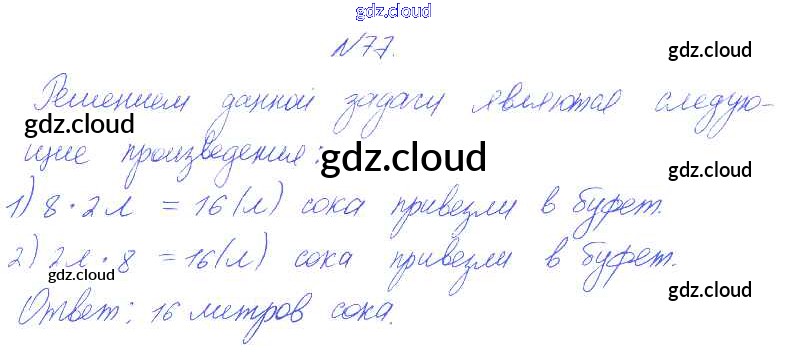 gdz.cloud
№77.
gdz.cloud
Решением данной задачи являются следую-
gdz.cloud
щие произведения:
gdz.cloud
gdz.cloud
1) 8 · 2л = 16(л) сока привезли в буфет.
gdz.cloud
2) 2л · 8 = 16(л) сока привезли в буфет.
gdz.cloud
Ответ: 16 метров сока.
gdz.cloud